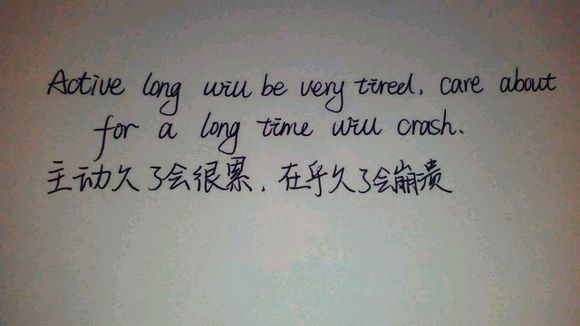 Active long will be very tired, care about
for a long time will crash.
主动久了会很累，在乎久了会崩溃